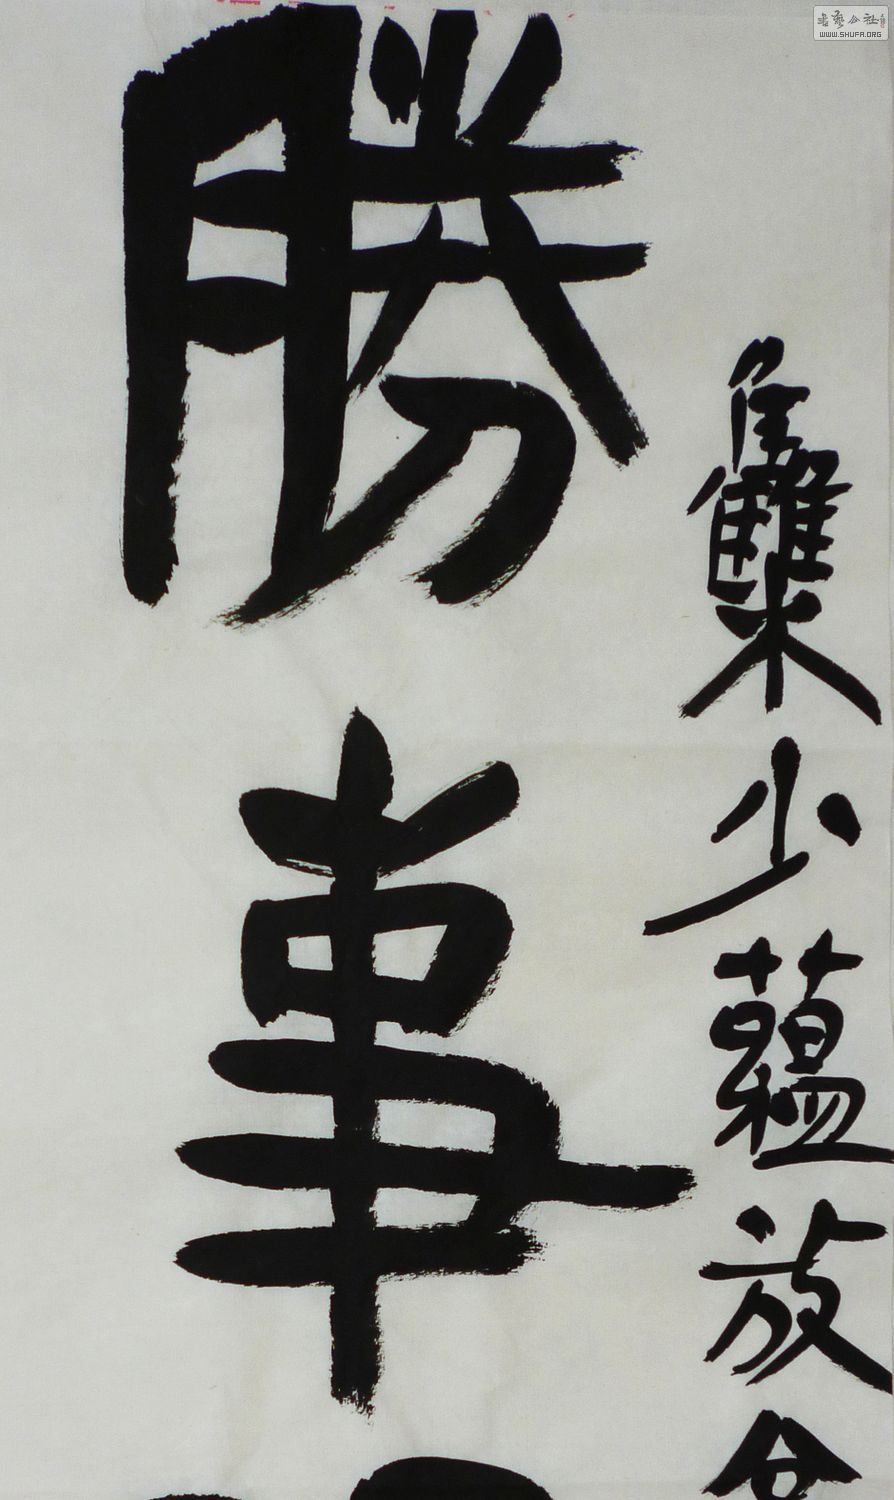 書藝公社
WWW.SHUFA.ORG
雧少蘊放
勝事